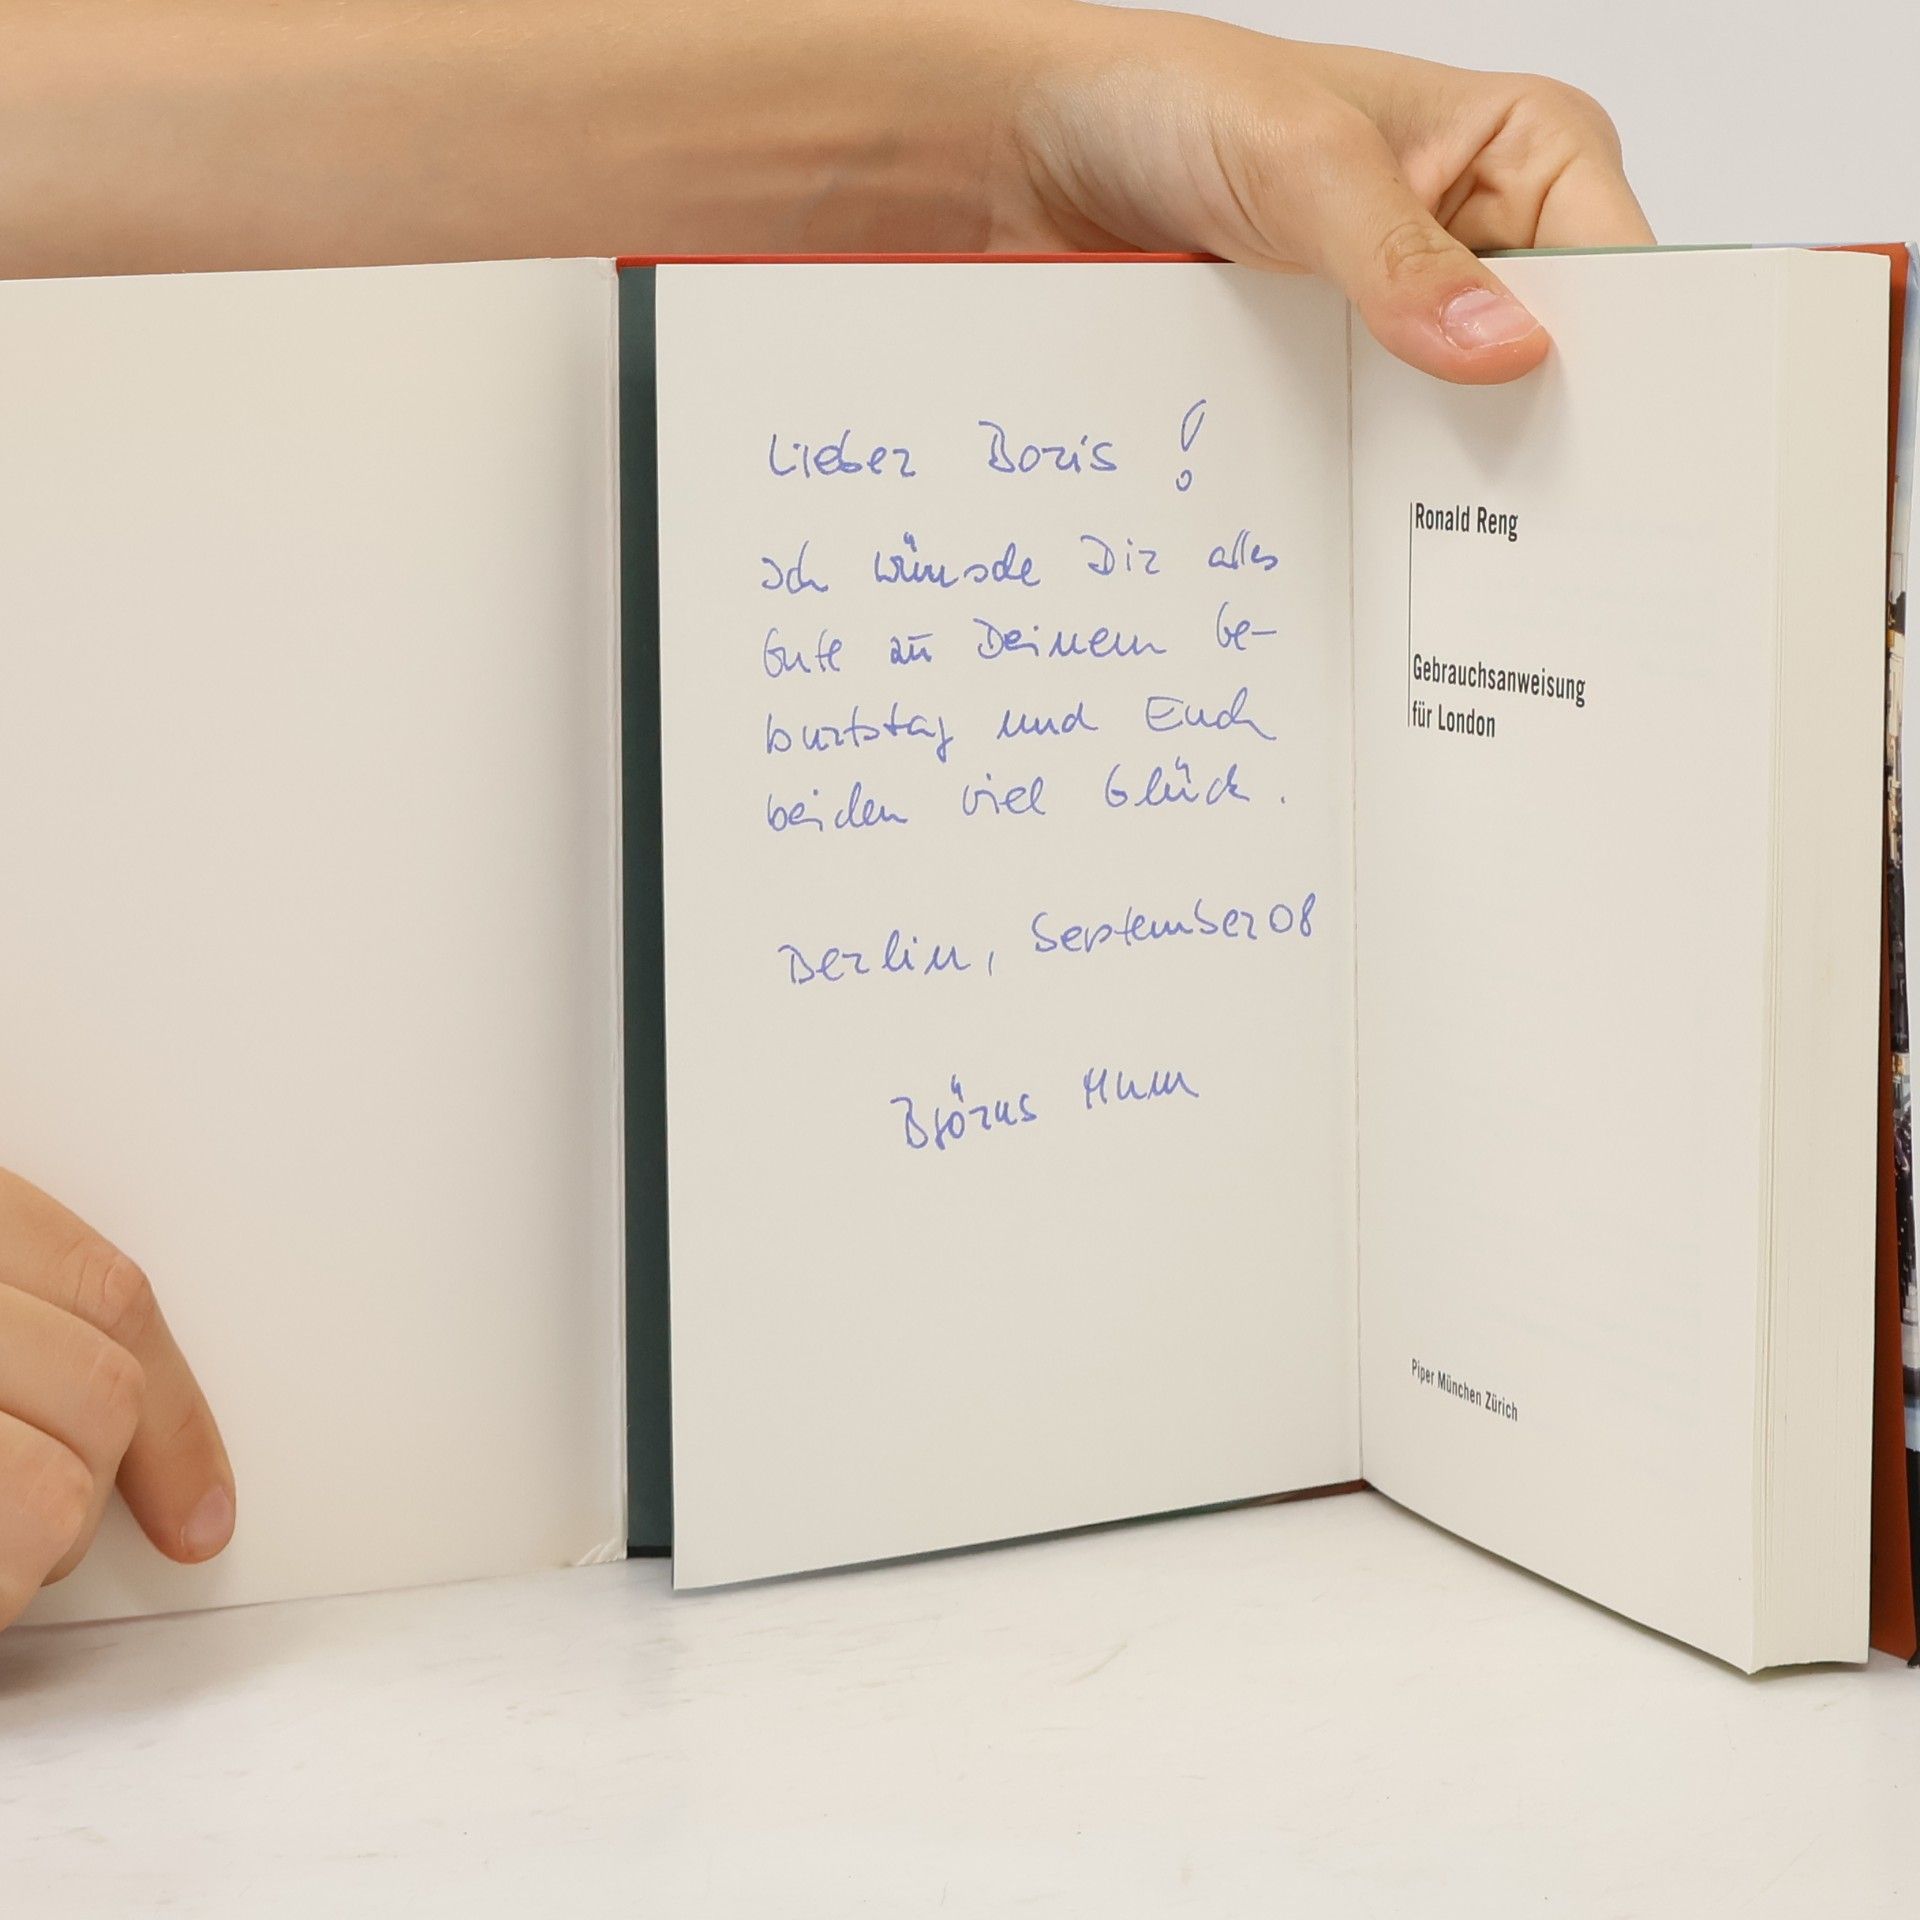 Lieber Boris!
Ich wünsche Dir alles
Gute zu Deinem Ge-
burtstag und Euch
beiden viel Glück.
Berlin, September 08
Björns Mum
Ronald Reng
Gebrauchsanweisung
für London
Piper München Zürich